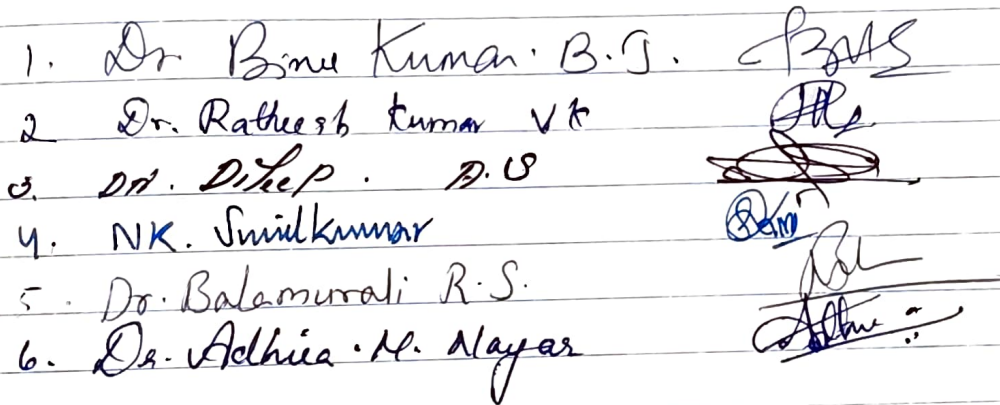 1. Dr Binu Kumar. B.J.
2 Dr. Ratheesh Kumar VK
3. DR. Dileep. D.S
4. NK. Sunilkumar
5. Dr. Balamurali R.S.
6. Dr. Adhira. M. Nayar